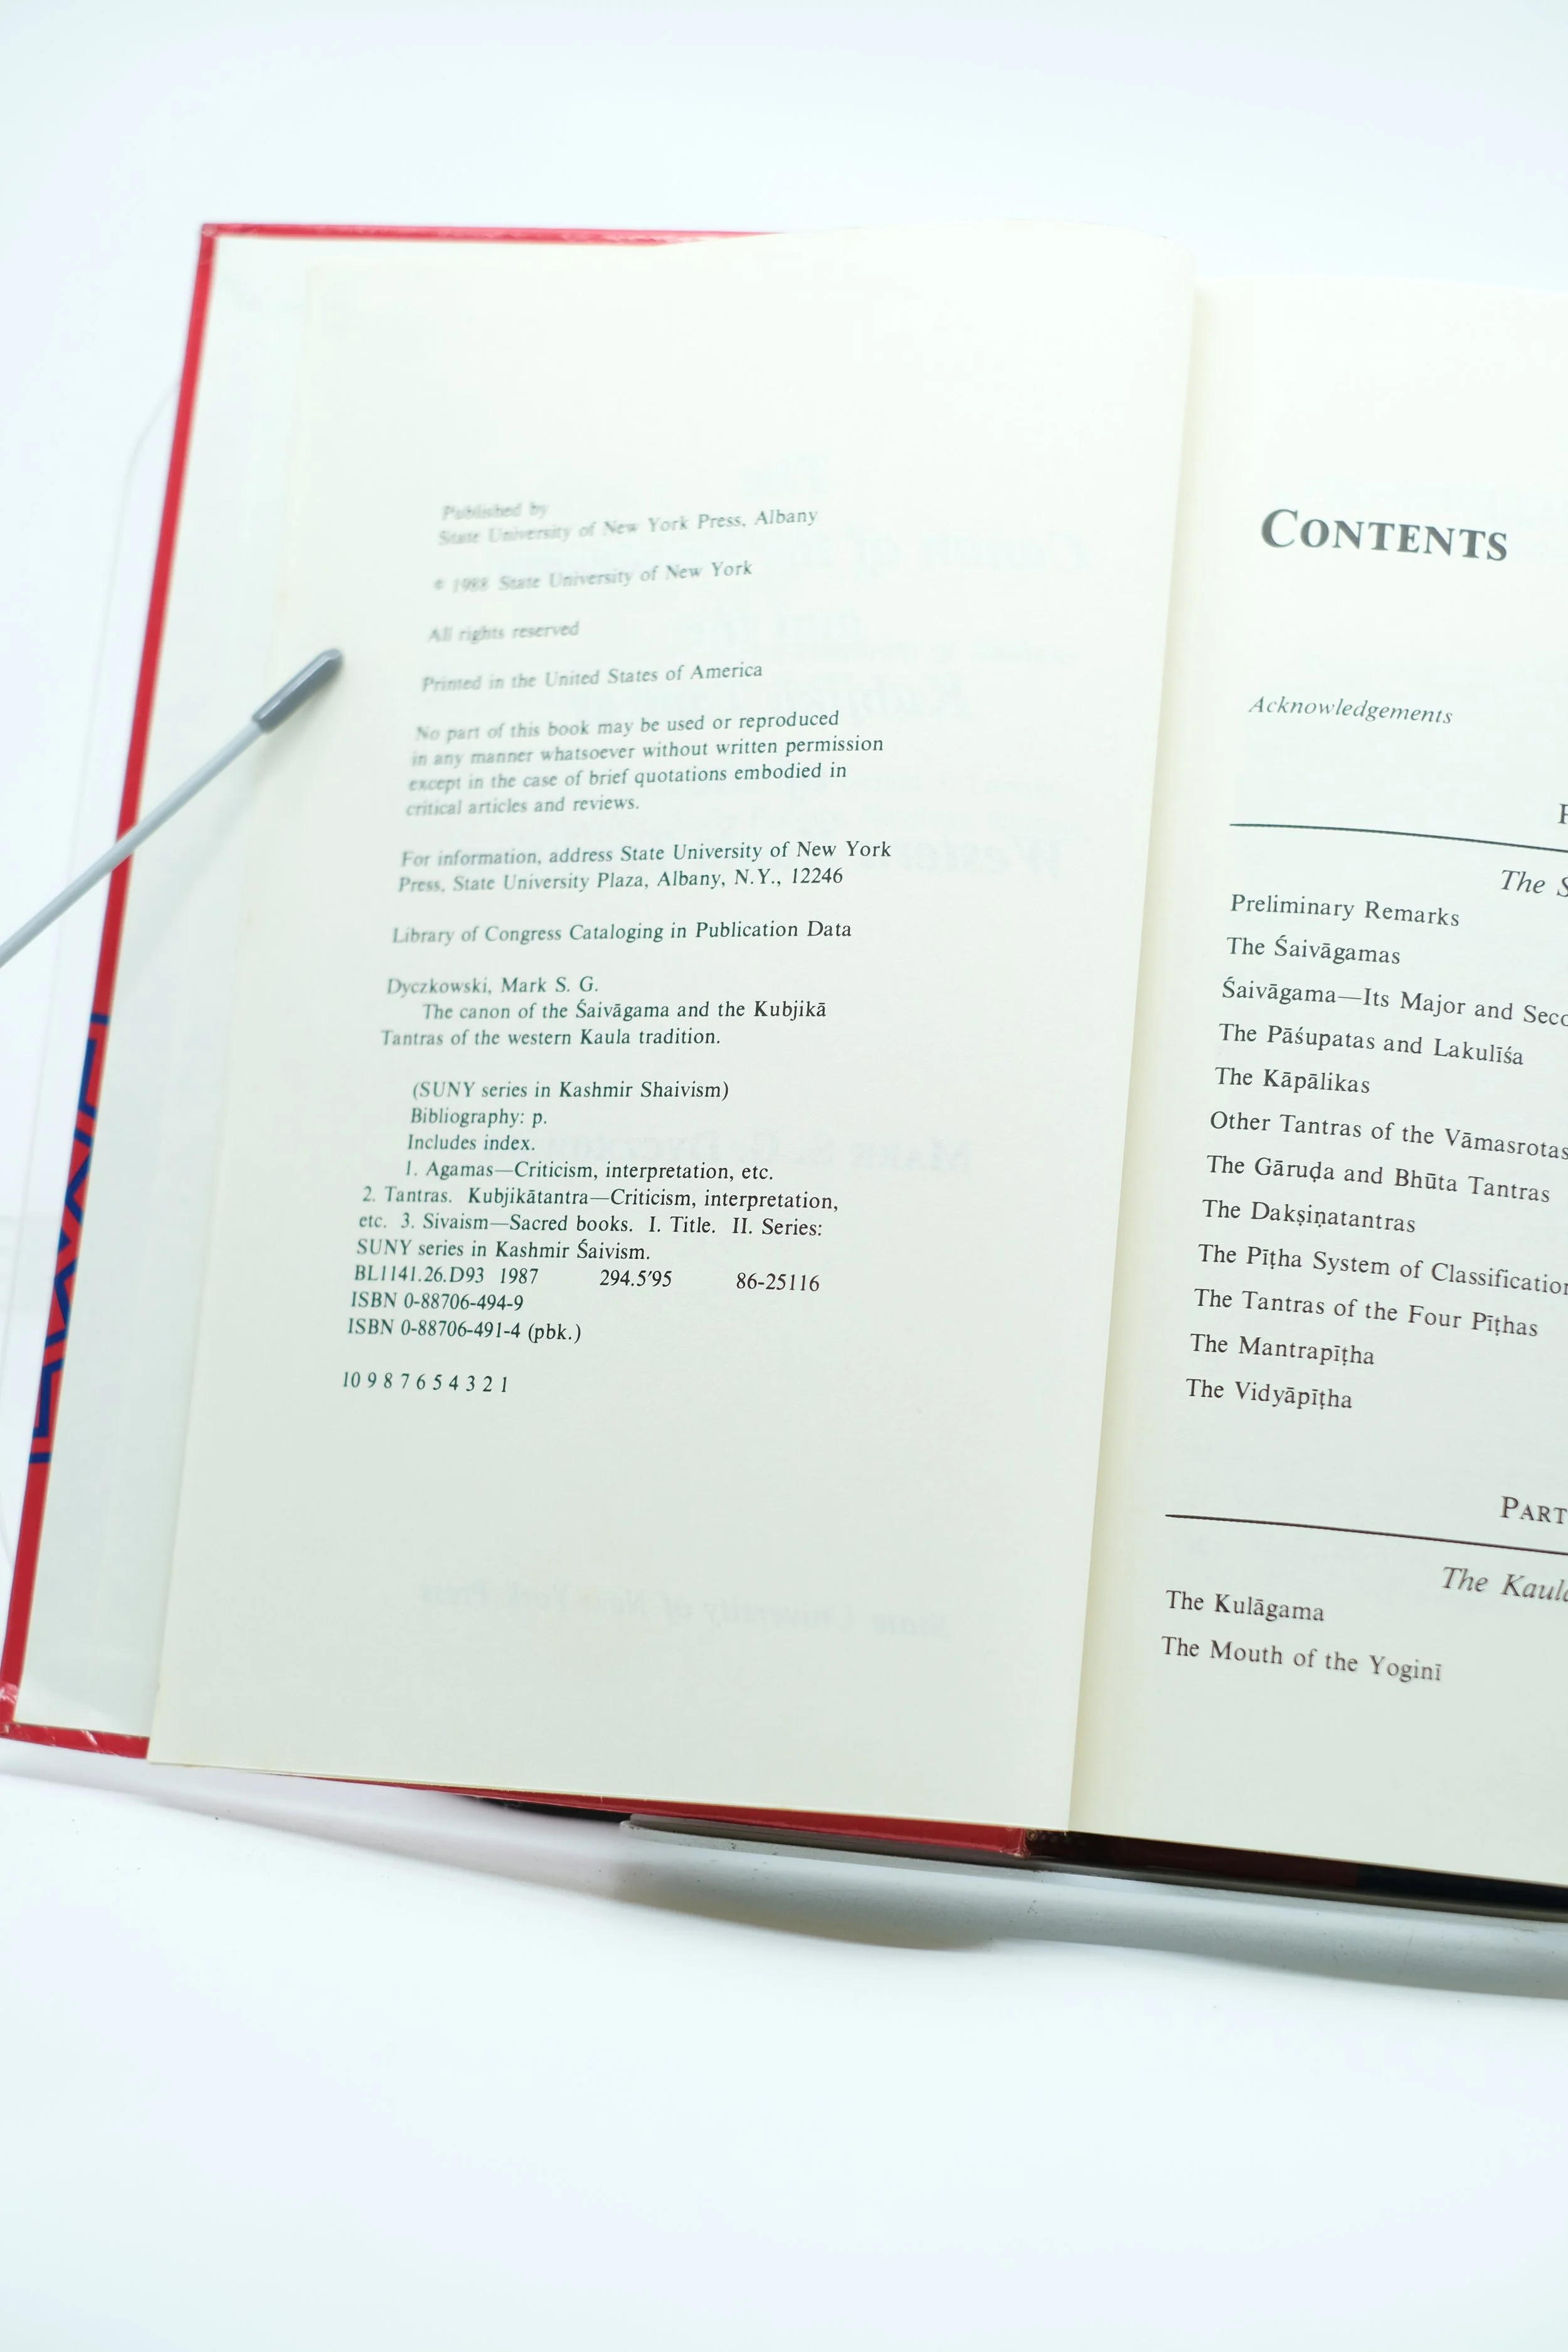 Published by
State University of New York Press, Albany
© 1988 State University of New York
All rights reserved
Printed in the United States of America
No part of this book may be used or reproduced
in any manner whatsoever without written permission
except in the case of brief quotations embodied in
critical articles and reviews.
For information, address State University of New York
Press, State University Plaza, Albany, N.Y., 12246
Library of Congress Cataloging in Publication Data
Dyczkowski, Mark S. G.
The canon of the Śaivāgama and the Kubjikā
Tantras of the western Kaula tradition.
(SUNY series in Kashmir Shaivism)
Bibliography: p.
Includes index.
1. Agamas—Criticism, interpretation, etc.
2. Tantras. Kubjikātantra—Criticism, interpretation,
etc. 3. Sivaism—Sacred books. I. Title. II. Series:
SUNY series in Kashmir Śaivism.
BL1141.26.D93 1987 294.5'95 86-25116
ISBN 0-88706-494-9
ISBN 0-88706-491-4 (pbk.)
10 9 8 7 6 5 4 3 2 1
CONTENTS
Acknowledgements
The S
Preliminary Remarks
The Śaivāgamas
Śaivāgama—Its Major and Seco
The Pāśupatas and Lakulīśa
The Kāpālikas
Other Tantras of the Vāmasrotas
The Gāruḍa and Bhūta Tantras
The Dakṣiṇatantras
The Pīṭha System of Classification
The Tantras of the Four Pīṭhas
The Mantrapīṭha
The Vidyāpīṭha
PART
The Kaula
The Kulāgama
The Mouth of the Yoginī